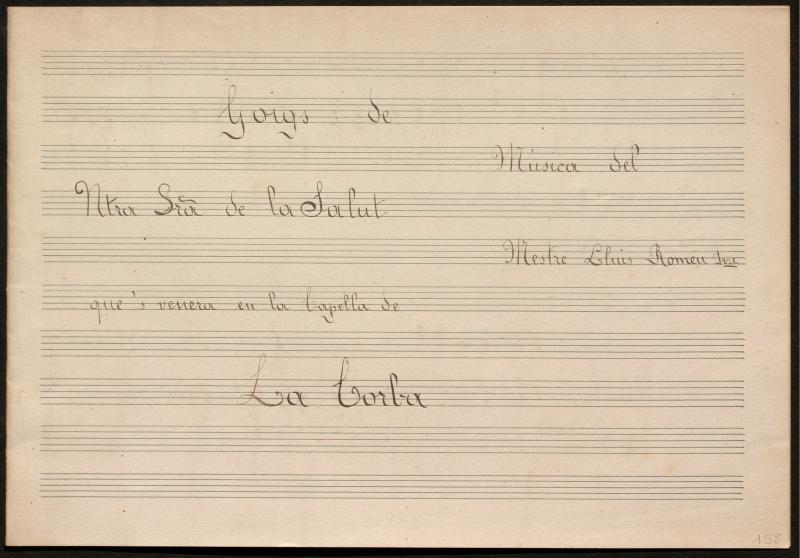 Goigs de
Música del
Ntra Sra de la Salut
Mestre Lluis Romeu Pvre
que's venera en la Capella de
La Corba
158